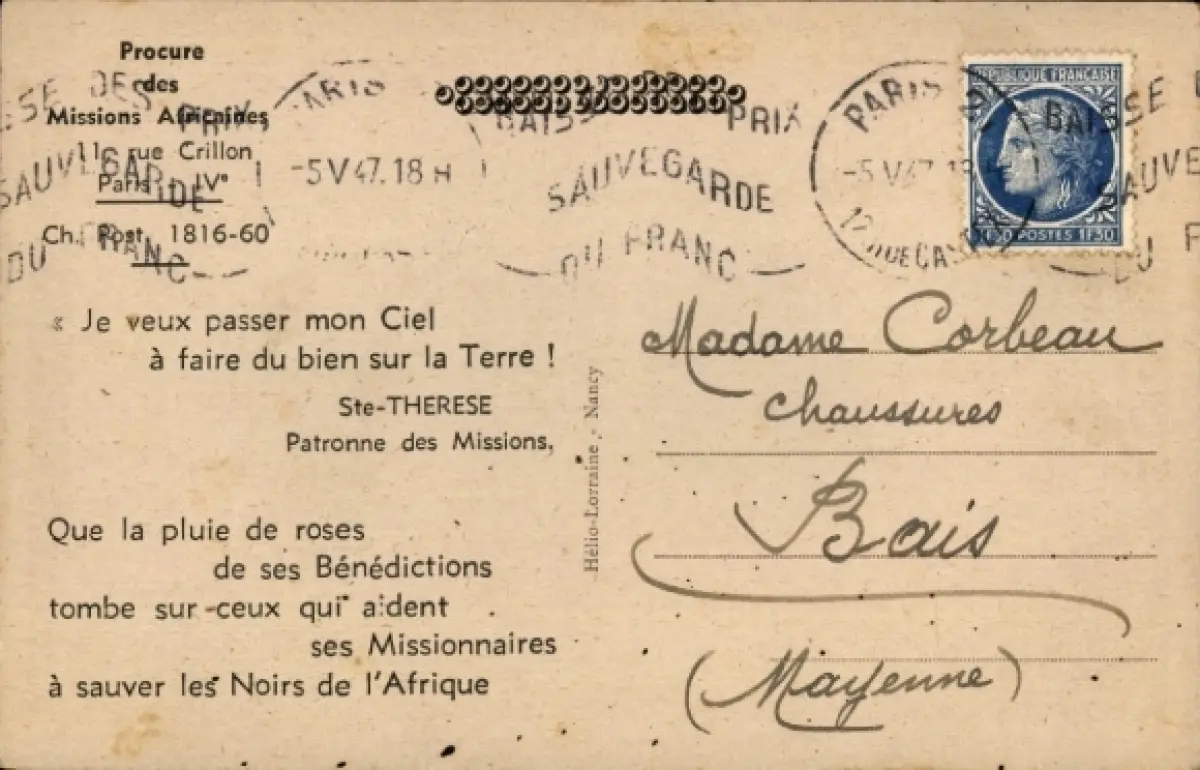 Procure
des
Missions Africaines
11, rue Crillon
Paris - IVe
Ch. Post. 1816-60
PARIS
-5 V 47. 18 H
BAISSE DES PRIX
SAUVEGARDE
DU FRANC
PARIS
-5 V 47. 18
RÉPUBLIQUE FRANÇAISE
POSTES 1F30
« Je veux passer mon Ciel
à faire du bien sur la Terre !
Ste-THERESE
Patronne des Missions,
Que la pluie de roses
de ses Bénédictions
tombe sur ceux qui aident
ses Missionnaires
à sauver les Noirs de l'Afrique
Hélio-Lorraine - Nancy
Madame Corbeau
chaussures
Bais
(Mayenne)